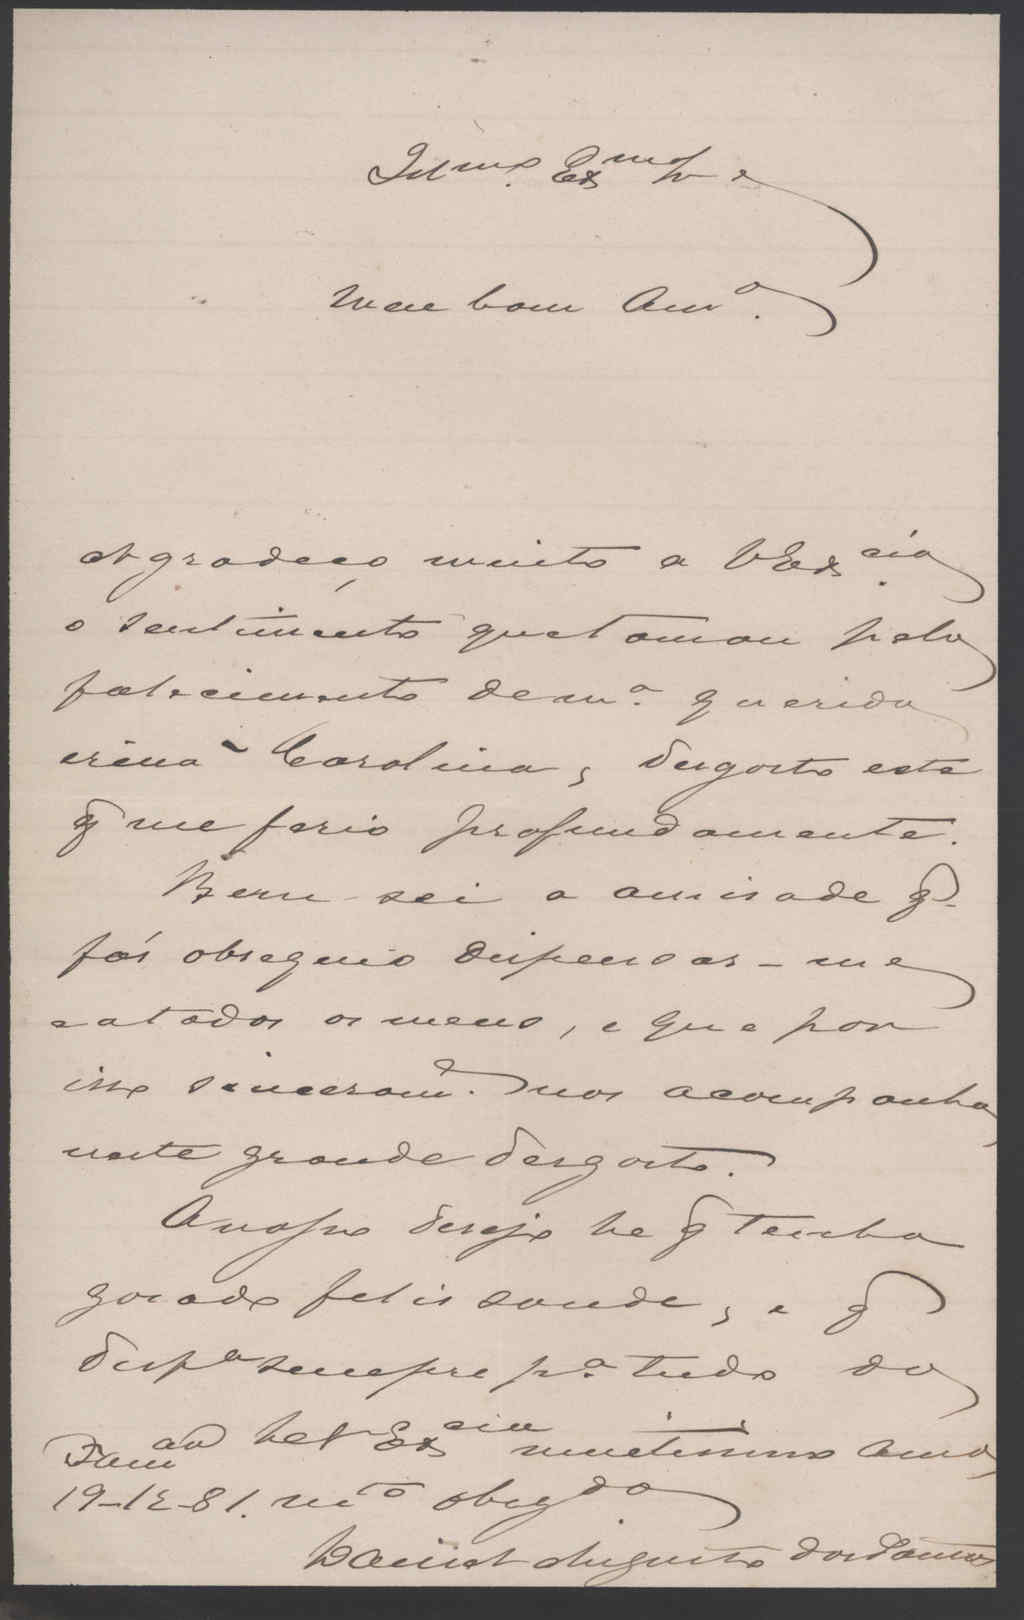 Illmo. Exmo Sr e
Meu bom Amo.
Agradeço muito a V Exa. cia
o sentimento que tomou pelo
falecimento de ma. querida
irmã Carolina, desgosto este
q me ferio profundamente.
Bem sei a amisade q
fás obsequio dispensar-me
e a todos os meus, e que por
isso sinceramte. nos acompanha
neste grande desgosto.
A nosso desejo he q tenha
gosado felis saude, e q
dispa sempre pa. tudo do
he V Excia muitissimo Amo
Famão
19-12-81. mto obrigdo
Daniel Augusto dos Santos